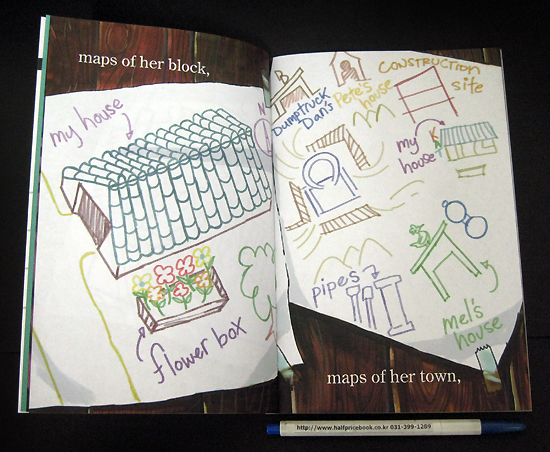 maps of her block,
my house
flower box
Dumptruck
Dan's
Pete's
house
CONSTRUCTION
site
my
house
pipes
mel's
house
maps of her town,
http://www.halfpricebook.co.kr 031-399-1289